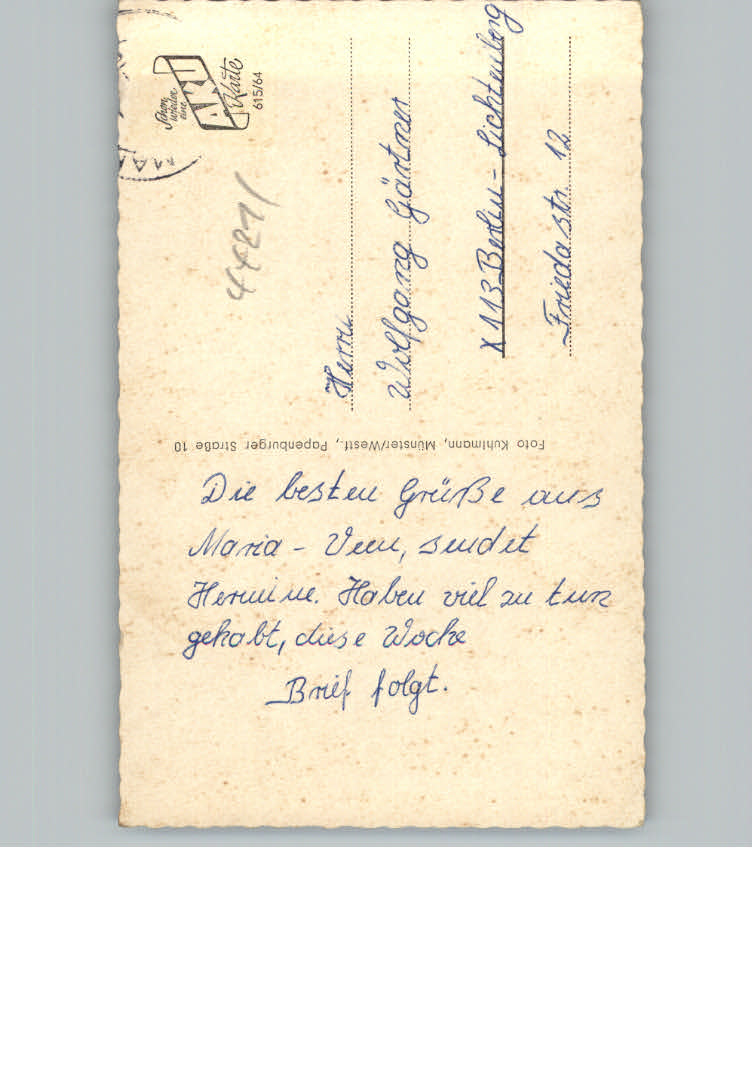 Schon
wieder
eine
Karte
615/64
Herrn
Wolfgang Gärtner
X 113 Berlin - Lichtenberg
Frieda str. 12
Foto Kuhlmann, Münster/Westf., Papenburger Straße 10
Die besten Grüße aus
Maria - Veen, sendet
Hermine. Haben viel zu tun
gehabt, diese Woche
Brief folgt.